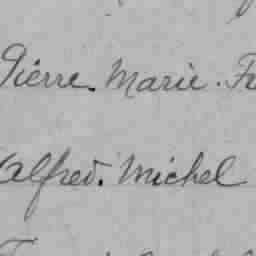 Pierre. Marie. Fr
Alfred. Michel